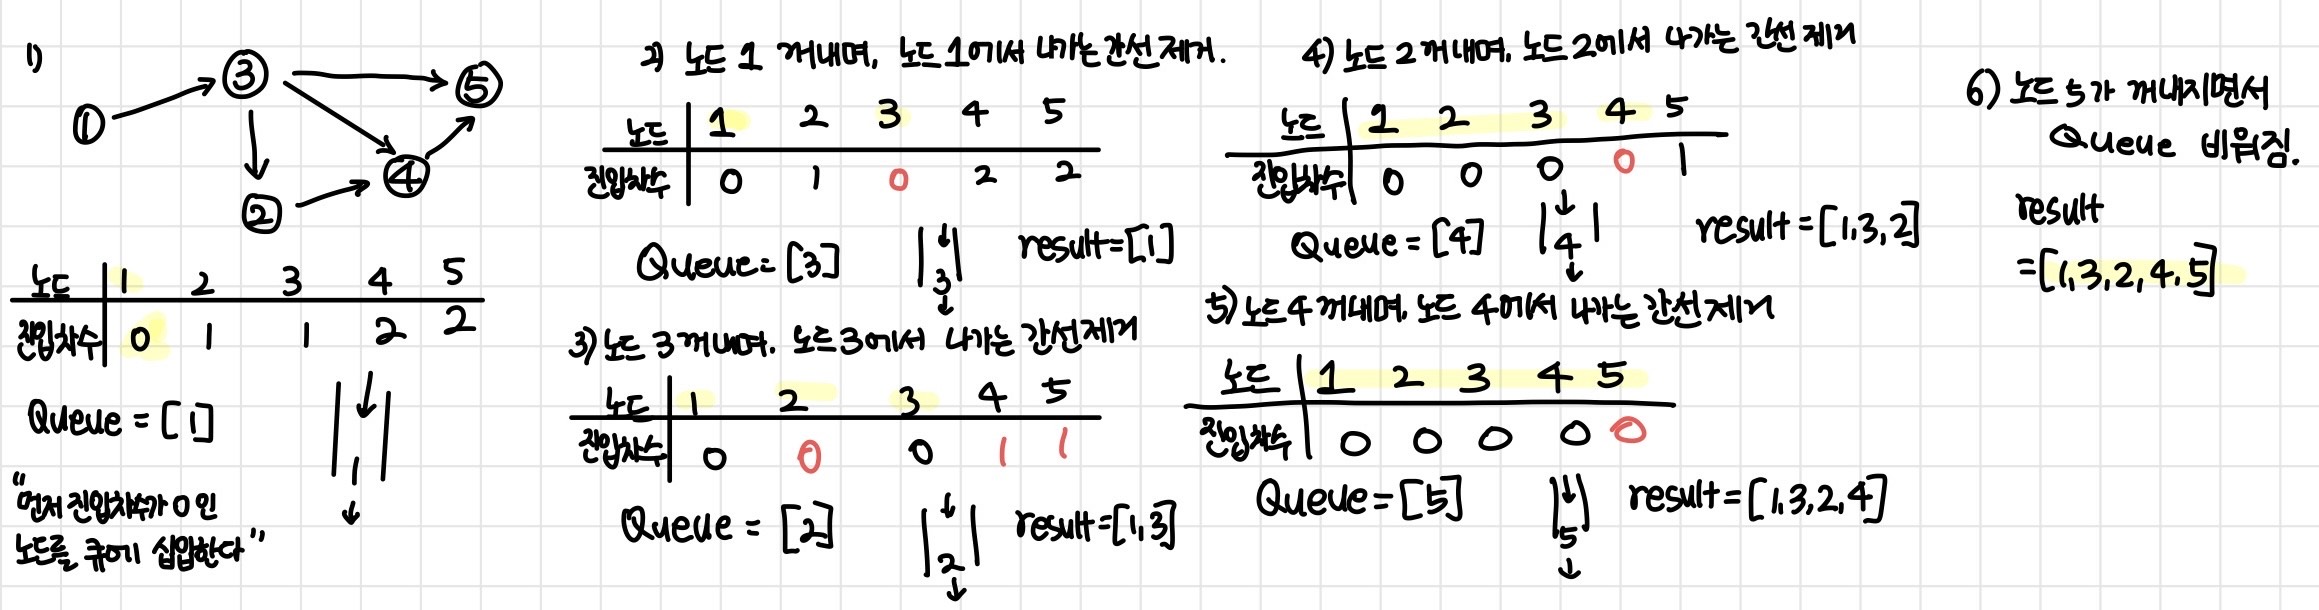 1)
1 3 5
4
2
노드 1 2 3 4 5
진입차수 0 1 1 2 2
Queue = [1]
1
"먼저 진입차수가 0인
노드를 큐에 삽입한다"
2) 노드 1 꺼내며, 노드 1에서 나가는 간선 제거.
노드 1 2 3 4 5
진입차수 0 1 0 2 2
Queue = [3] 3 result=[1]
3) 노드 3 꺼내며, 노드 3에서 나가는 간선 제거
노드 1 2 3 4 5
진입차수 0 0 0 1 1
Queue = [2] 2 result=[1,3]
4) 노드 2 꺼내며, 노드 2에서 나가는 간선 제거
노드 1 2 3 4 5
진입차수 0 0 0 0 1
Queue = [4] 4 result = [1,3,2]
5) 노드 4 꺼내며, 노드 4에서 나가는 간선 제거
노드 1 2 3 4 5
진입차수 0 0 0 0 0
Queue = [5] 5 result = [1,3,2,4]
6) 노드 5가 꺼내지면서
Queue 비워짐.
result
= [1,3,2,4,5]